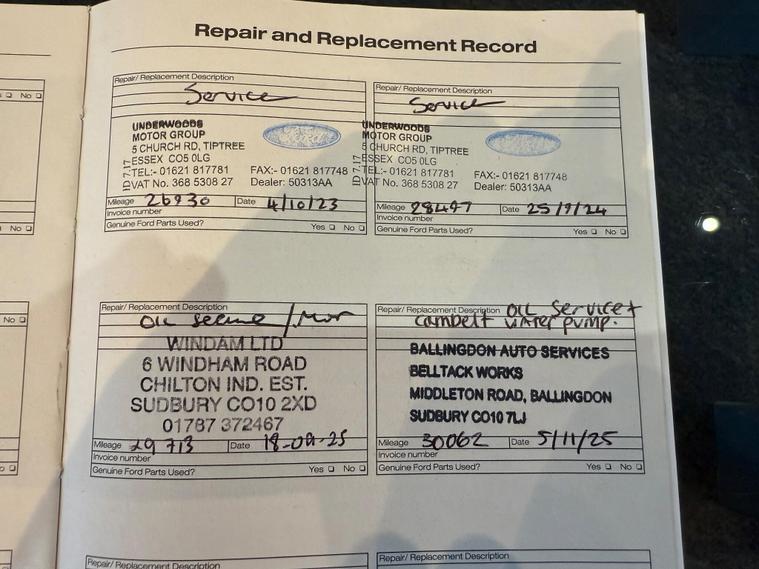 Repair and Replacement Record
No
Repair/ Replacement Description
Service
UNDERWOODS
MOTOR GROUP
5 CHURCH RD, TIPTREE
ESSEX CO5 0LG
TEL:- 01621 817781 FAX:- 01621 817748
VAT No. 368 5308 27 Dealer: 50313AA
Mileage 26930 Date 4/10/23
Invoice number
Genuine Ford Parts Used? Yes No
Repair/ Replacement Description
Service
UNDERWOODS
MOTOR GROUP
5 CHURCH RD, TIPTREE
ESSEX CO5 0LG
TEL:- 01621 817781 FAX:- 01621 817748
VAT No. 368 5308 27 Dealer: 50313AA
Mileage 28497 Date 25/9/24
Invoice number
Genuine Ford Parts Used? Yes No
No
No
Repair/ Replacement Description
OIL Service/MOT
WINDAM LTD
6 WINDHAM ROAD
CHILTON IND. EST.
SUDBURY CO10 2XD
01787 372467
Mileage 29713 Date 18-09-25
Invoice number
Genuine Ford Parts Used? Yes No
Repair/ Replacement Description OIL Service +
Cambelt water pump.
BALLINGDON AUTO SERVICES
BELLTACK WORKS
MIDDLETON ROAD, BALLINGDON
SUDBURY CO10 7LJ
Mileage 30062 Date 5/11/25
Invoice number
Genuine Ford Parts Used? Yes No
Repair/ Replacement Description
Repair/ Replacement Description